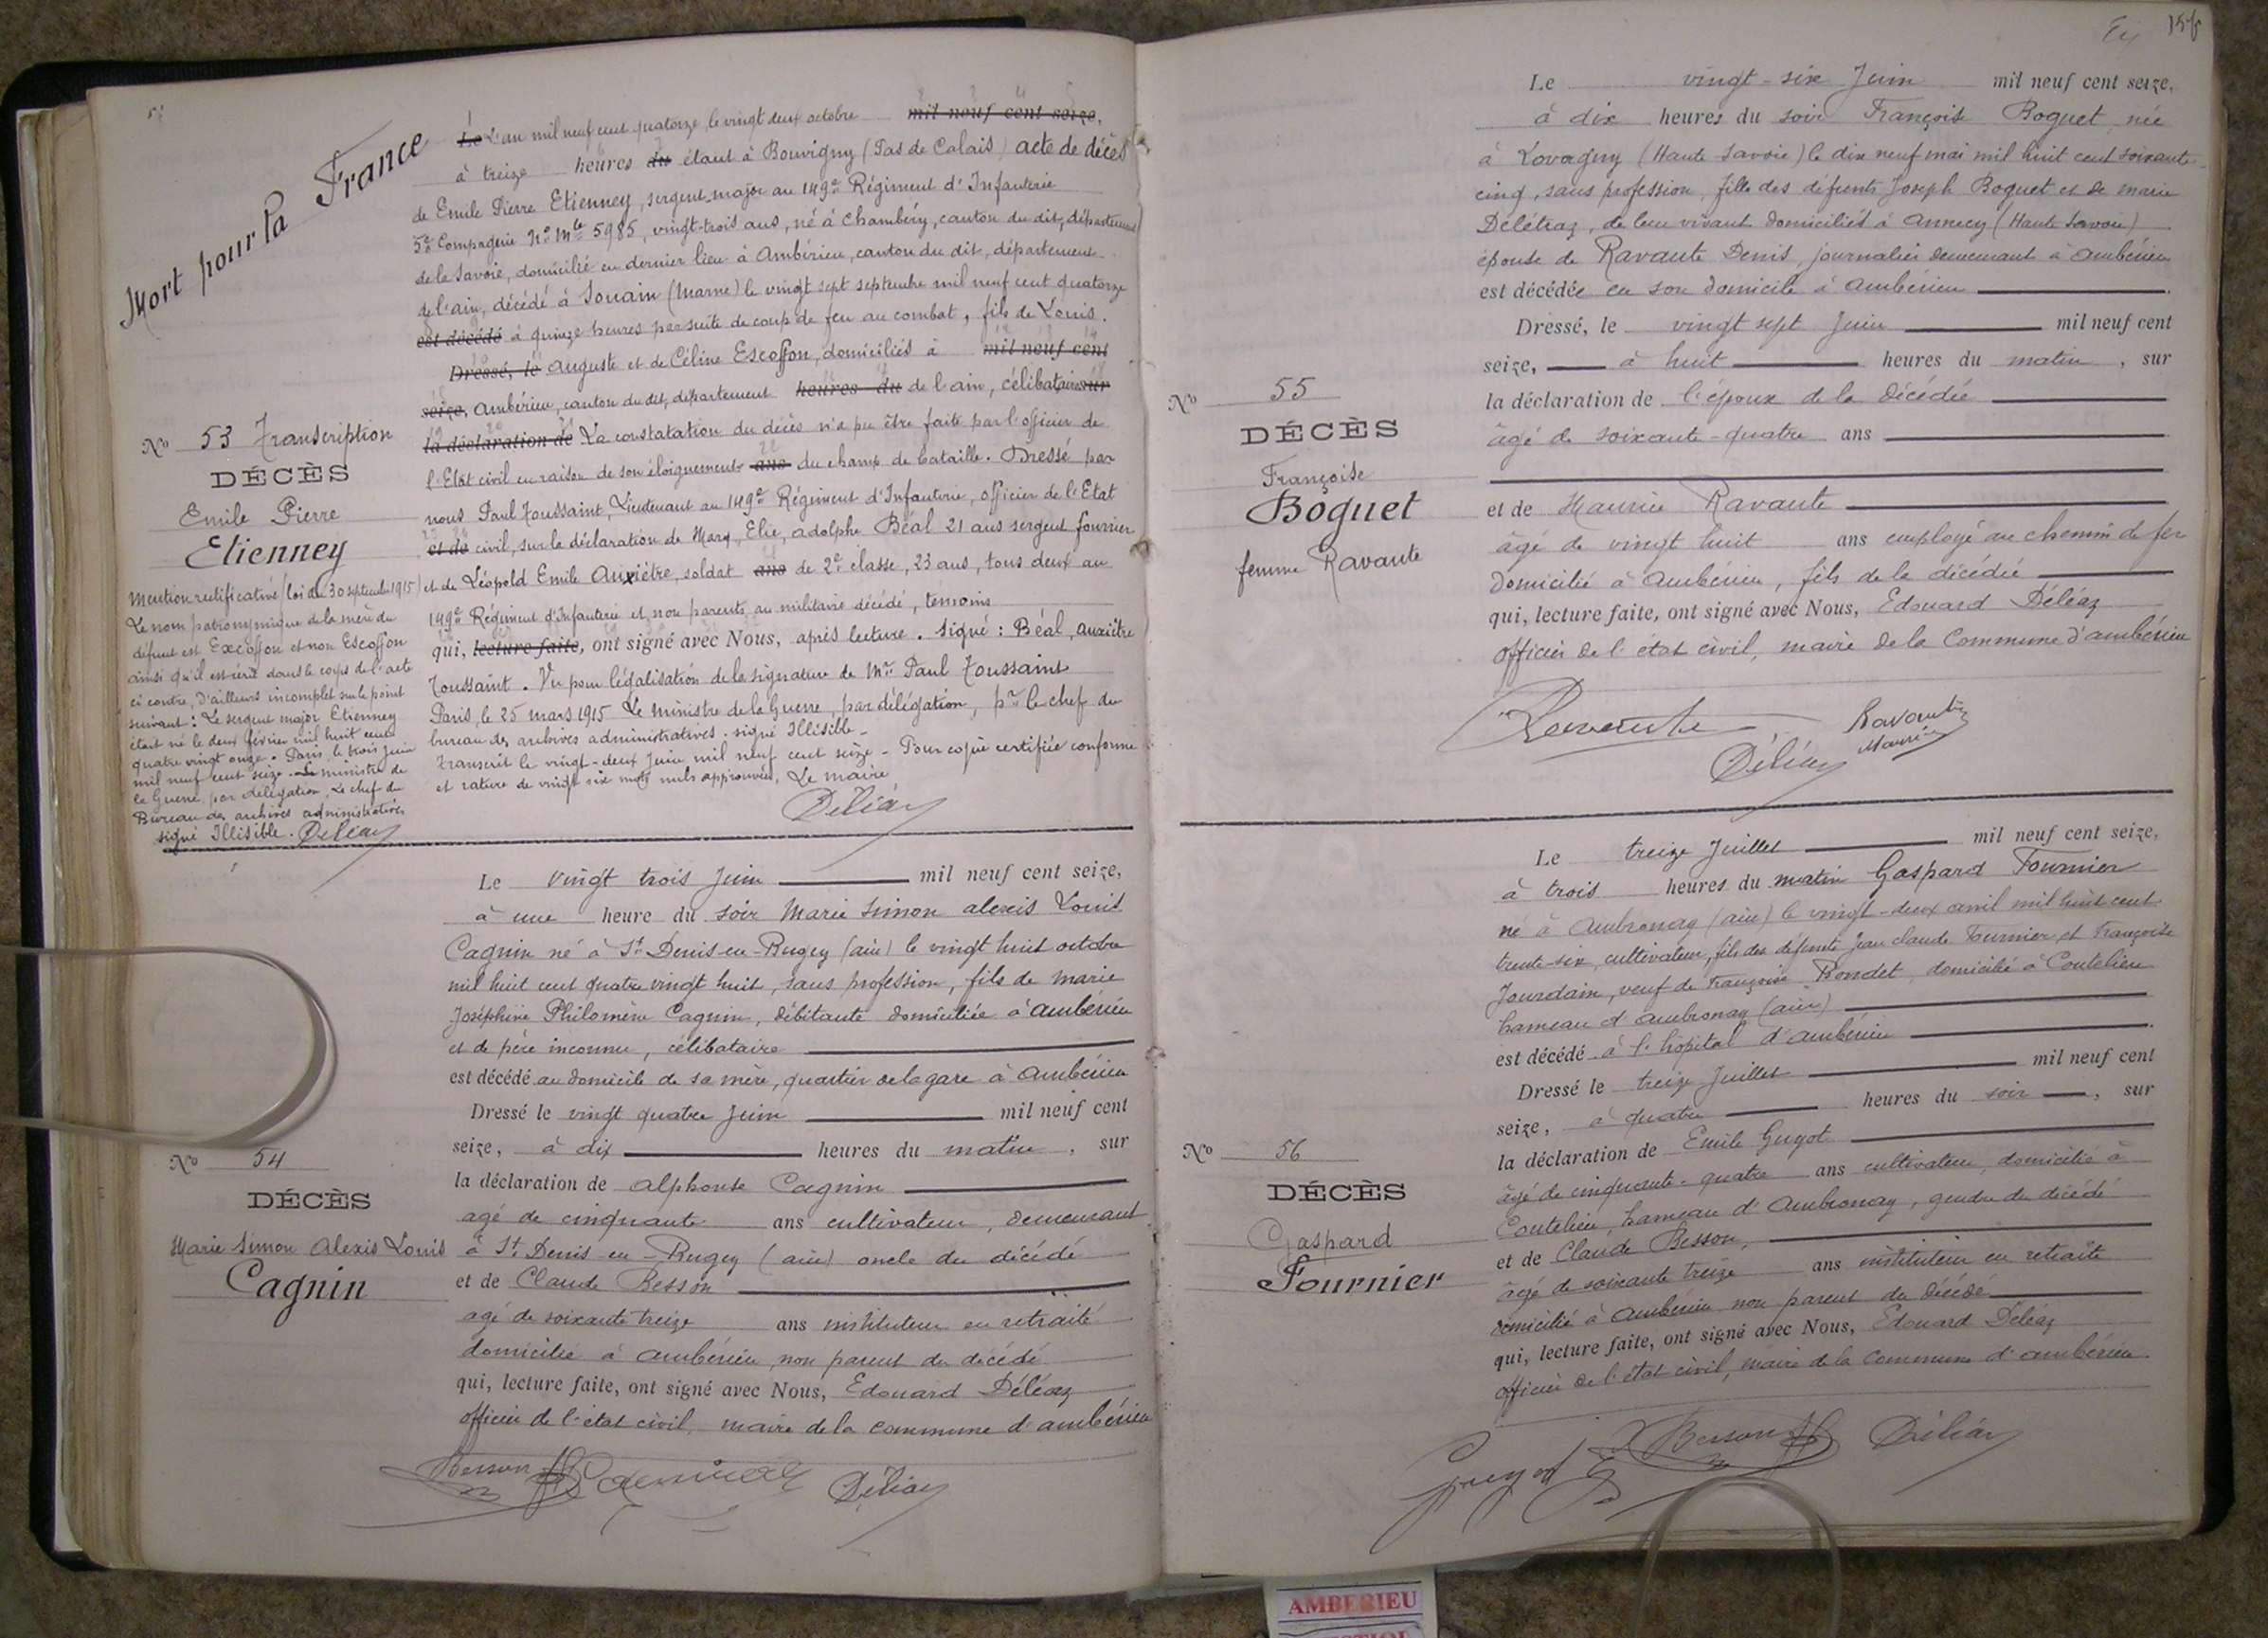 Mort pour la France
Le L'an mil neuf cent quatorze, le vingt deux octobre mil neuf cent seize,
à treize heures du étant à Bouvigny (Pas de Calais) acte de décès
de Emile Pierre Etienney, sergent major au 149e Régiment d'Infanterie
5e Compagnie No Mle 5985, vingt-trois ans, né à Chambéry, canton du dit, département
de la Savoie, domicilié en dernier lieu à Ambérieu, canton du dit, département
de l'ain, décédé à Souain (Marne) le vingt sept septembre mil neuf cent quatorze
est décédé à quinze heures par suite de coup de feu au combat, fils de Louis.
Dressé, le Auguste et de Céline Escoffon, domiciliés à mil neuf cent
seize, Ambérieu, canton du dit, département heures du de l'ain, célibataire sur
la déclaration de La constatation du décès n'a pu être faite par l'officier de
l'Etat civil en raison de son éloignement ans du champ de bataille. Dressé par
nous Paul Toussaint, Lieutenant au 149e Régiment d'Infanterie, officier de l'Etat
et de civil, sur la déclaration de Marq, Elie, adolphe Béal 21 ans sergent fourrier
et de Léopold Emile Auxiètre, soldat ans de 2e classe, 23 ans, tous deux au
149e Régiment d'Infanterie et non parents au militaire décédé, témoins
qui, lecture faite, ont signé avec Nous, après lecture. Signé : Béal, auxiètre
Toussaint. Vu pour légalisation de la signature de Mr Paul Toussaint
Paris, le 25 mars 1915 Le ministre de la Guerre, par délégation, pr le chef du
bureau des archives administratives. signé Illisible_
Transcrit le vingt-deux Juin mil neuf cent seize - Pour copie certifiée conforme
et rature de vingt six mots nuls approuvée, Le maire
Déléaz
No 53 Transcription
DÉCÈS
Emile Pierre
Etienney
Mention rectificative (loi du 30 septembre 1915)
Le nom patronymique de la mère du
défunt est Excoffon et non Escoffon
ainsi qu'il est écrit dans le corps de l'acte
ci contre, d'ailleurs incomplet sur le point
suivant : Le sergent major Etienney
était né le deux février mil huit cent
quatre vingt onze. Paris, le trois Juin
mil neuf cent seize. Le ministre de
la Guerre, par délégation, Le chef du
Bureau des archives administratives
signé Illisible. Déléaz
Le vingt trois Juin mil neuf cent seize,
à une heure du soir Marie Simon alexis Louis
Cagnin né à St Denis-en-Bugey (ain) le vingt huit octobre
mil huit cent quatre vingt huit, sans profession, fils de marie
Joséphine Philomène Cagnin, débitante domiciliée à ambérieu
et de père inconnu, célibataire
est décédé au domicile de sa mère, quartier de la gare à Ambérieu
Dressé le vingt quatre Juin mil neuf cent
seize, à dix heures du matin, sur
la déclaration de alphonse Cagnin
agé de cinquante ans cultivateur, demeurant
à St Denis en-Bugey (ain) oncle du décédé
et de Claude Besson
agé de soixante treize ans instituteur en retraite
domicilié à ambérieu, non parent du décédé
qui, lecture faite, ont signé avec Nous, Edouard Déléaz
officier de l'état civil, maire de la commune d'ambérieu
Besson Déléaz
No 54
DÉCÈS
Marie Simon Alexis Louis
Cagnin
Le vingt-six Juin mil neuf cent seize,
à dix heures du soir François Boquet née
à Lovagny (Haute Savoie) le dix neuf mai mil huit cent soixante
cinq, sans profession, fille des défunts Joseph Boquet et de marie
Délétraz, de leur vivant domiciliés à annecy (Haute Savoie)
épouse de Ravaute Denis, journalier demeurant à ambérieu
est décédée en son domicile à ambérieu
Dressé, le vingt sept Juin mil neuf cent
seize, à huit heures du matin, sur
la déclaration de l'époux de la décédée
âgé de soixante-quatre ans
et de Maurice Ravaute
âgé de vingt huit ans employé au chemin de fer
domicilié à ambérieu, fils de la décédée
qui, lecture faite, ont signé avec Nous, Edouard Déléaz
officier de l'état civil, maire de la Commune d'ambérieu
Ravaute Ravaute
Maurice
Déléaz
No 55
DÉCÈS
Françoise
Boquet
femme Ravaute
Le treize Juillet mil neuf cent seize,
à trois heures du matin Gaspard Fournier
né à Ambronay (ain) le vingt-deux avril mil huit cent
trente-six, cultivateur, fils des défunts Jean Claude Fournier et Françoise
Jourdain, veuf de Françoise Rondet, domicilié à Coutelieu
hameau d'Ambronay (ain)
est décédé à l'hôpital d'ambérieu
Dressé le treize Juillet mil neuf cent
seize, à quatre heures du soir, sur
la déclaration de Emile Guyot
âgé de cinquante-quatre ans cultivateur, domicilié à
Coutelieu, hameau d'Ambronay, gendre du décédé
et de Claude Besson,
âgé de soixante treize ans instituteur en retraite
domicilié à Ambérieu non parent du décédé
qui, lecture faite, ont signé avec Nous, Edouard Déléaz
officier de l'état civil, maire de la commune d'ambérieu
Guyot E Besson Déléaz
No 56
DÉCÈS
Gaspard
Fournier
AMBERIEU